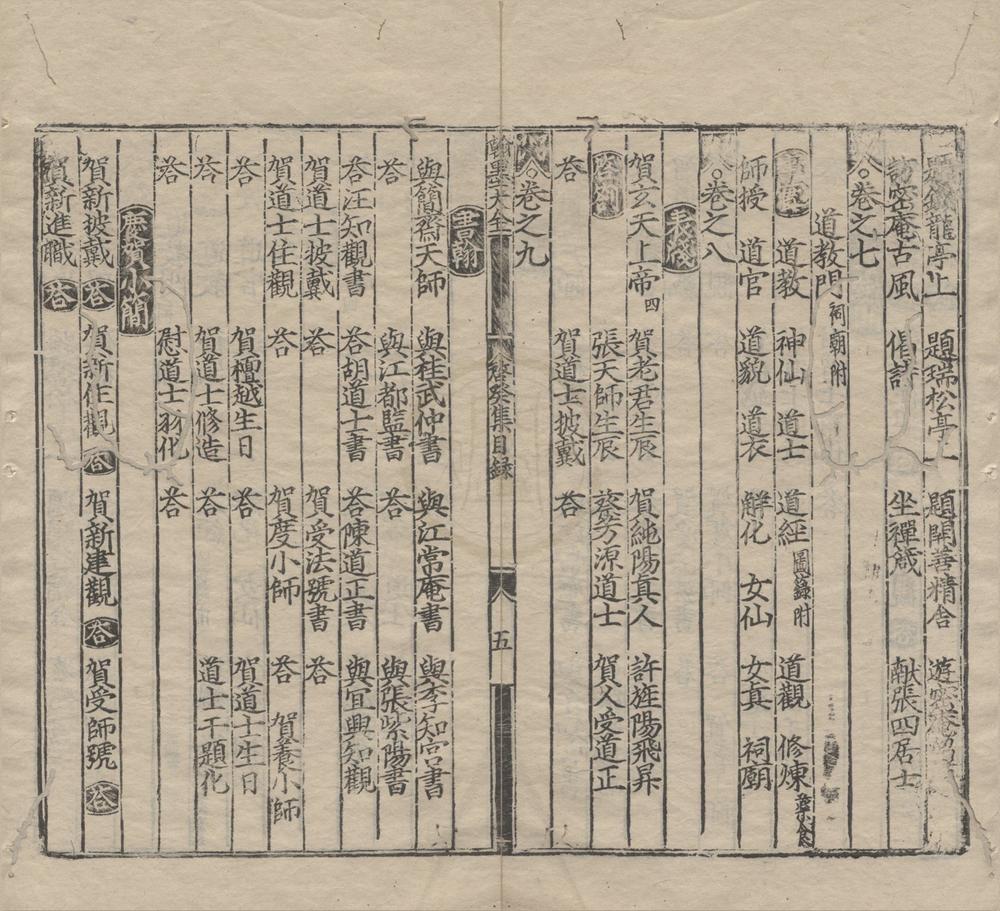 龍亭上 題瑞松亭上 題開善精舍 遊密菴
訪密庵古風 偈詩 坐禪箴 献張四居士
卷之七
道教門 祠朝附
道教 神仙 道士 道經 圖籙附 道觀 修煉
師授 道官 道貌 道衣 解化 女仙 女真 祠廟
卷之八
表牋
賀玄天上帝 四 賀老君生辰 賀純陽真人 許旌陽飛昇
荅 張天師生辰 蔡芳源道士 賀人受道正
荅 賀道士披戴 荅
卷之九
翰墨大全 癸集目録 八 五
書翰
與簡齋天師 與桂武仲書 與江常庵書 與李知宮書
荅 與江都監書 荅 與張紫陽書
荅汪知觀書 荅胡道士書 荅陳道正書 與宜興知觀
賀道士披戴 荅 賀受法號書 荅
賀道士住觀 荅 賀度小師 荅 賀養小師
荅 賀檀越生日 荅 賀道士生日
荅 賀道士修造 荅 道士干題化
荅 慰道士羽化 荅
慶賀小簡
賀新披戴 荅 賀新住觀 荅 賀新建觀 荅 賀受師號 荅
賀新進職 荅